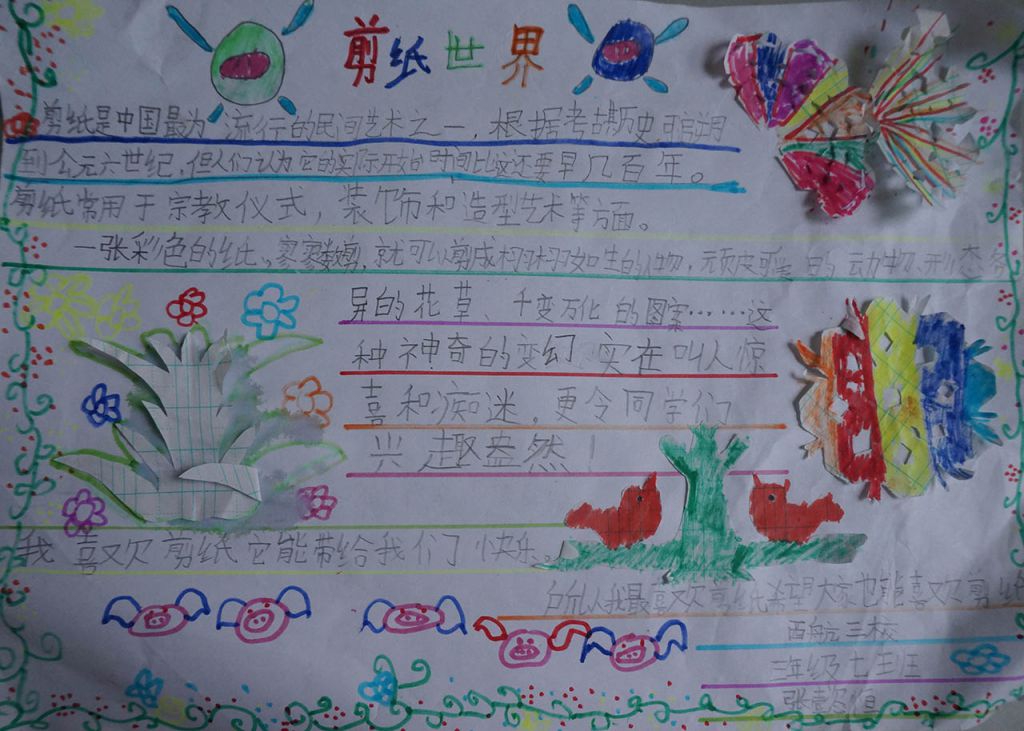 剪纸世界
剪纸是中国最为流行的民间艺术之一,根据考古历史可追溯
到公元六世纪,但人们认为它的实际开始时间比较还要早几百年。
剪纸常用于宗教仪式,装饰和造型艺术等方面。
一张彩色的纸、寥寥数剪,就可以剪成栩栩如生的人物,顽皮可爱的动物、形态各
异的花草、千变万化的图案……这
种神奇的变幻实在叫人惊
喜和痴迷,更令同学们
兴趣盎然!
我喜欢剪纸它能带给我们快乐。
我最喜欢剪纸希望大家也能喜欢剪纸
西航三校
三年级七班